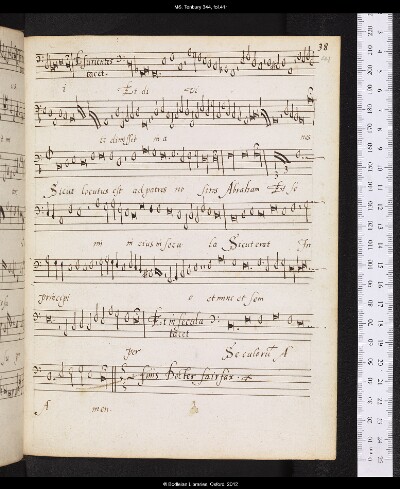 MS. Tenbury 344, fol.41r
38
Esurientes
tacet.
i Et di vi
ti dimissit in a nes
Sicut locutus est ad patres no stros Abraham Et se
3 3
mi ni eius in secu la Sicut erat In
principi o et nunc et sem
Et in secula
tacet
per Seculorum A
finis Docter fairfax
A men.
© Bodleian Libraries, Oxford, 2012